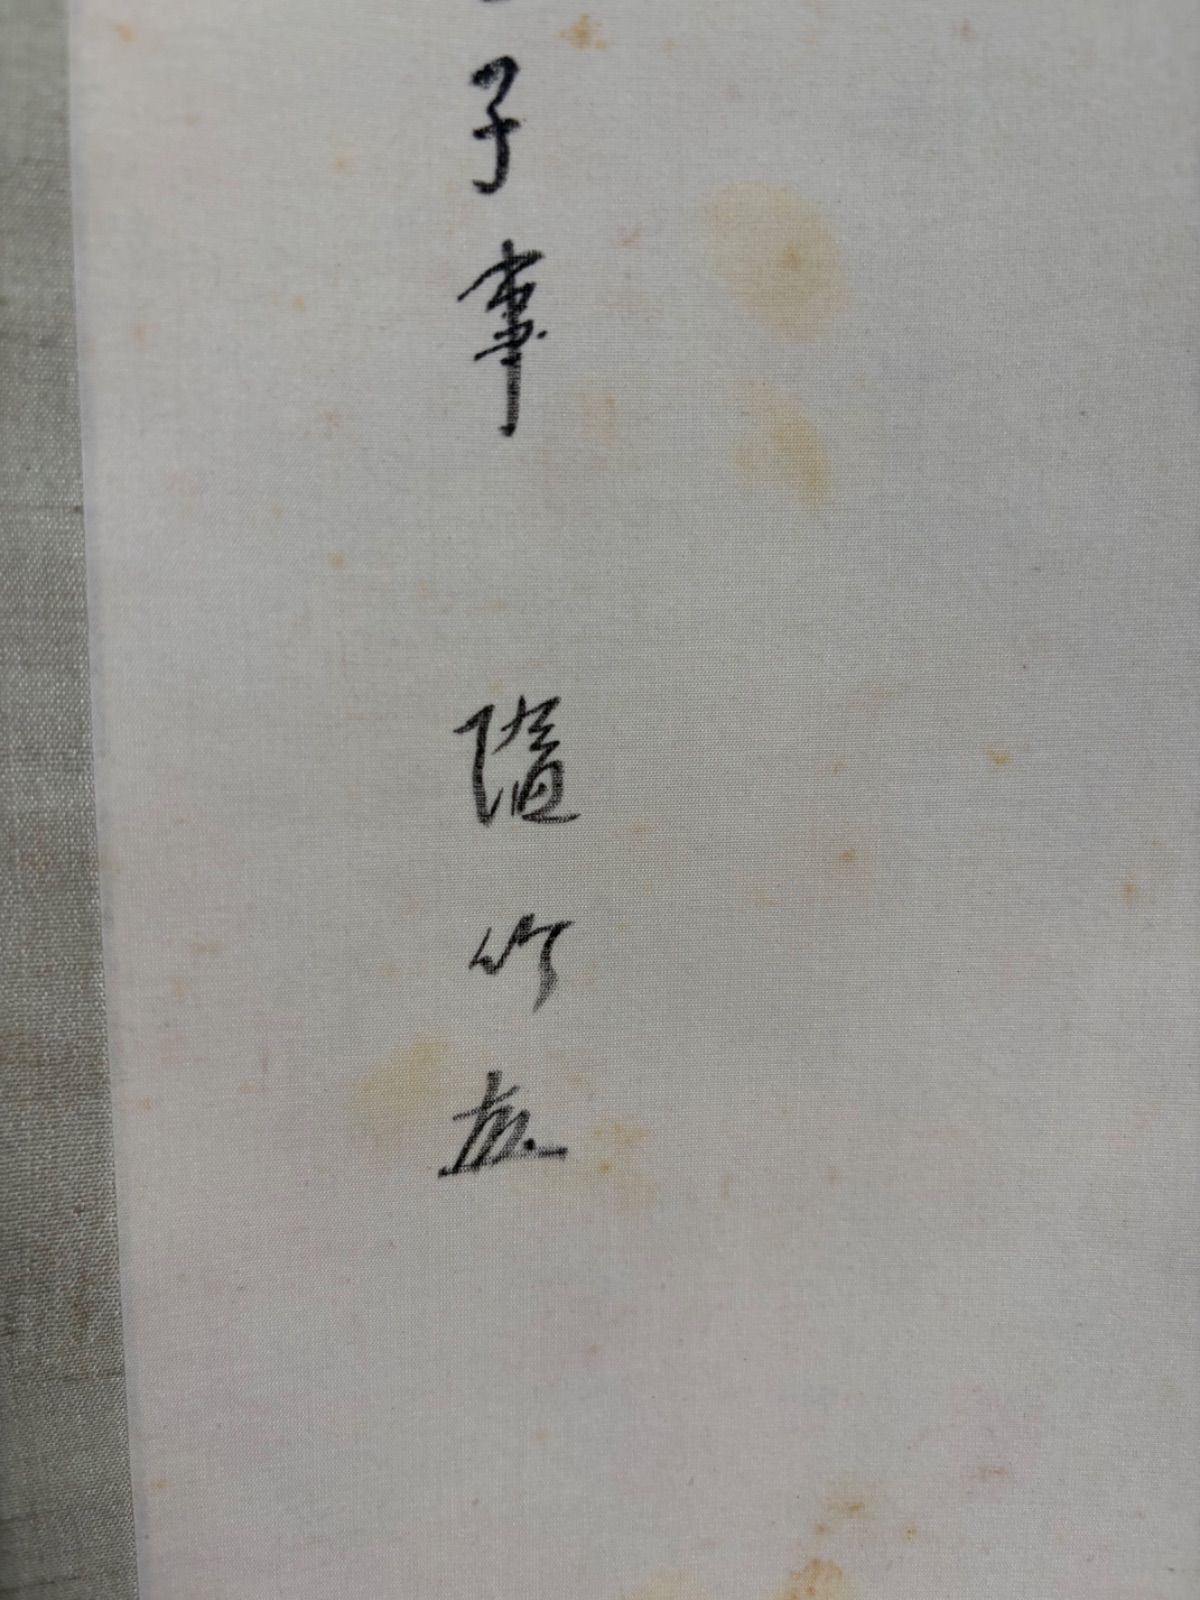 子事　隨竹